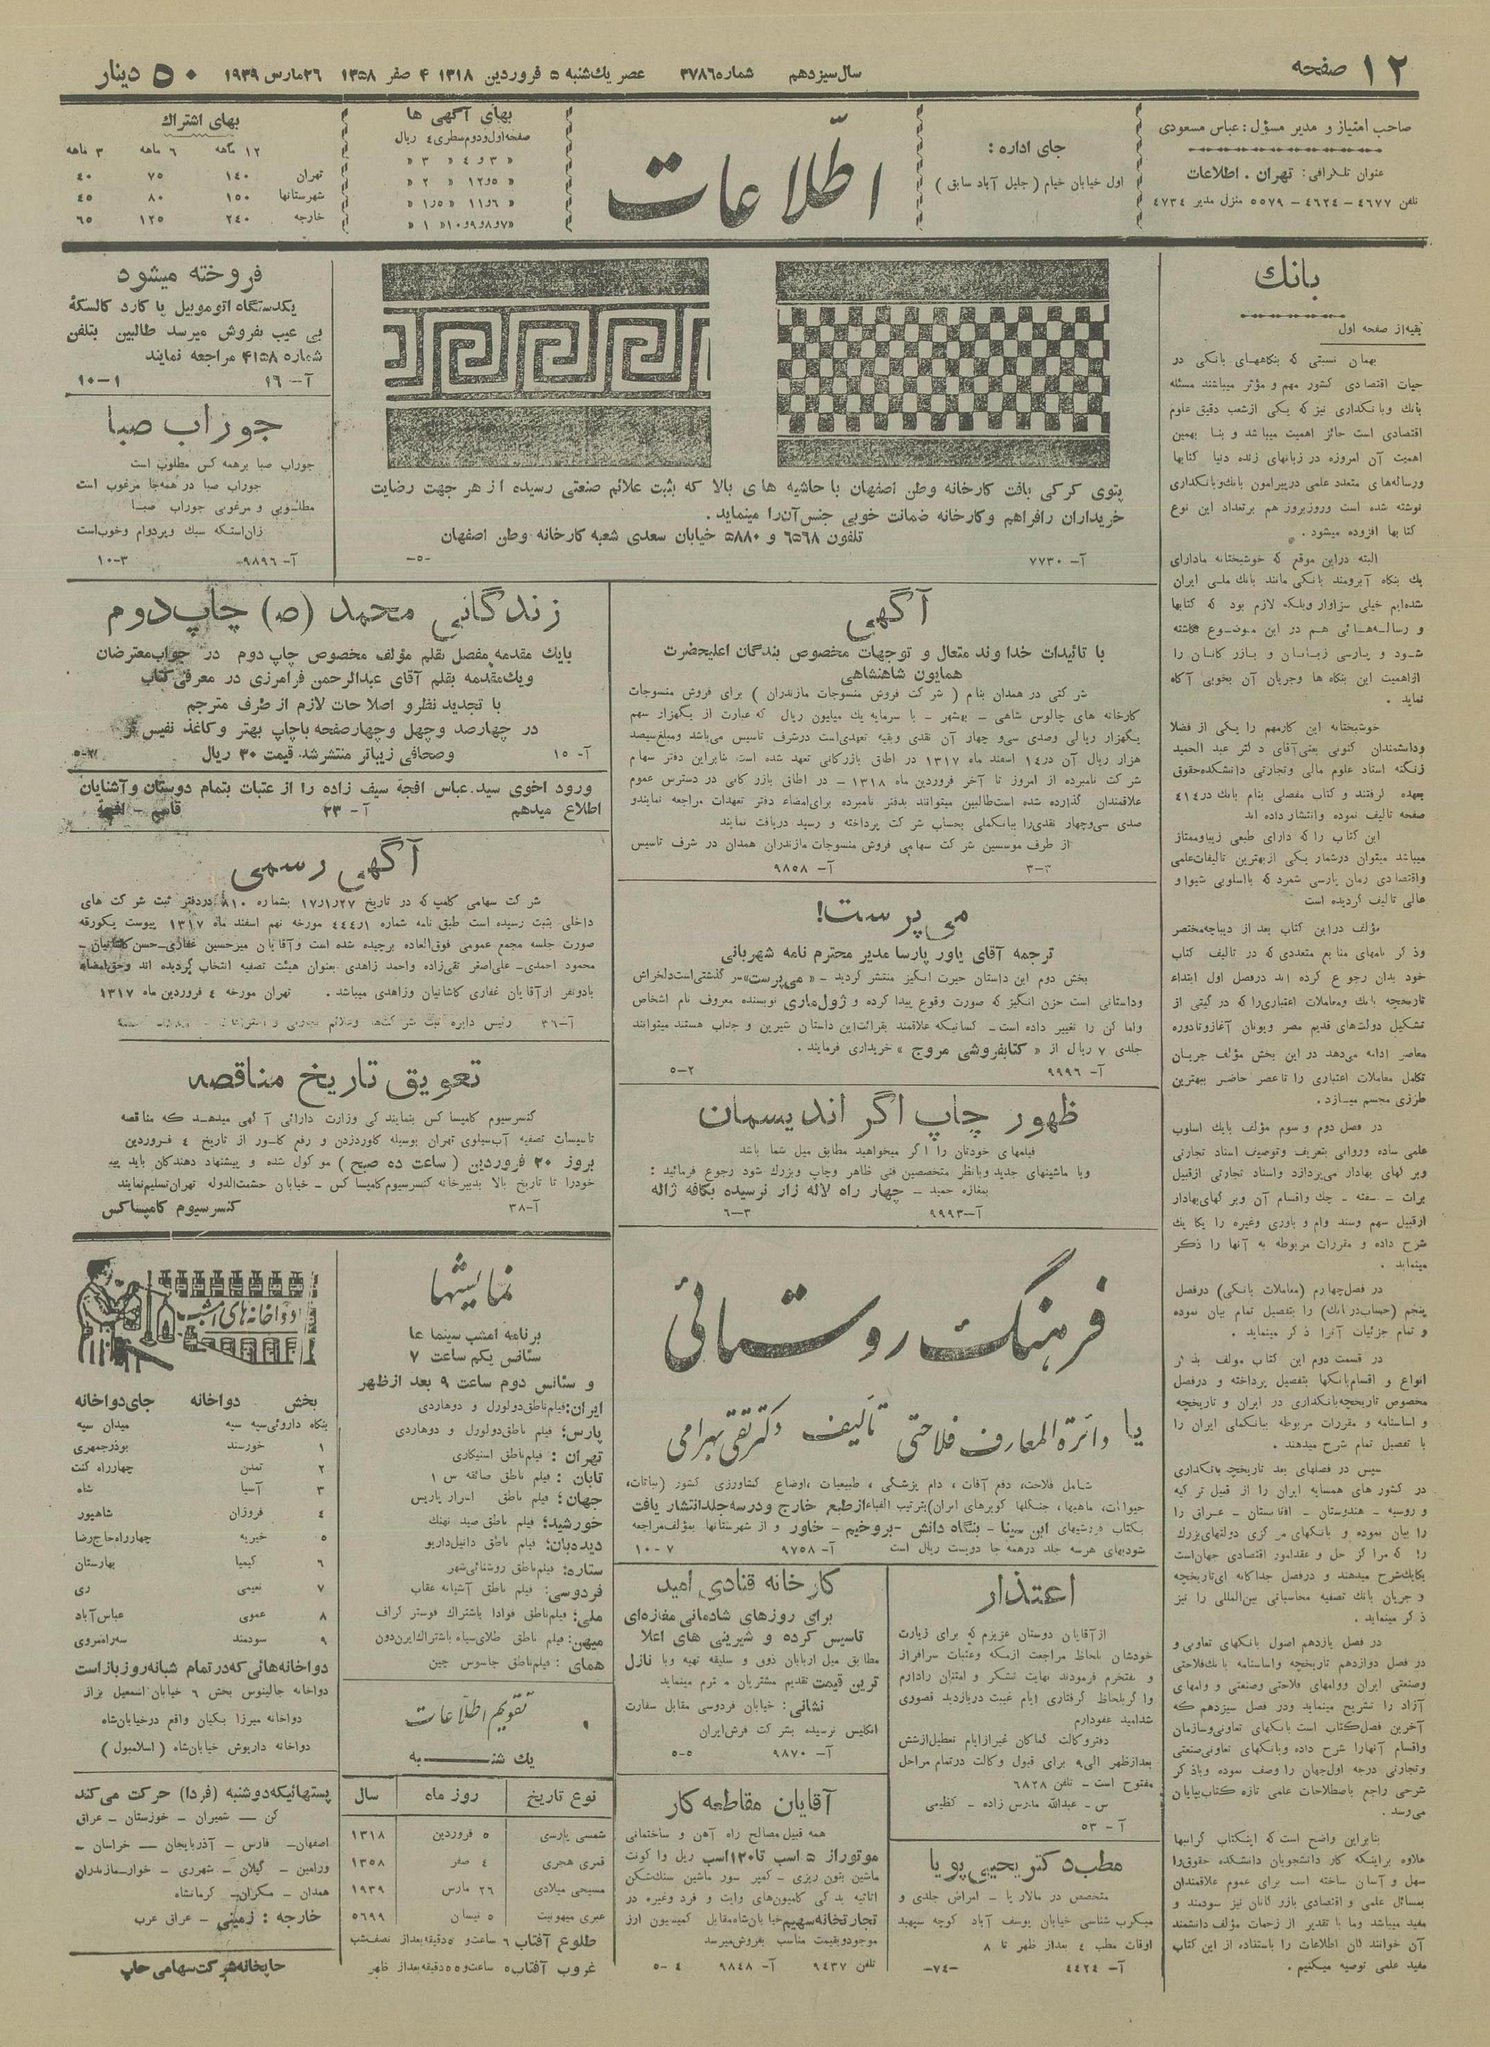 ۱۲ صفحه
سال سیزدهم شماره ۳۷۸۶ عصر یك شنبه ۵ فروردین ۱۳۱۸ ۴ صفر ۱۳۵۸ ۲۶ مارس ۱۹۳۹
۵۰ دینار
صاحب امتیاز و مدیر مسؤل: عباس مسعودی
عنوان تلگرافی: تهران . اطلاعات
تلفن ۴۶۷۷ - ۴۶۲۴ - ۵۵۷۹ منزل مدیر ۴۷۳۴
جای اداره :
اول خیابان خیام ( جلیل آباد سابق )
اطّلاعات
بهای آگهی ها
صفحه اول و دوم سطری ۴ ریال
بهای اشتراك
۱۲ ماهه ۶ ماهه ۳ ماهه
تهران ۱۴۰ ۷۵ ۴۰
شهرستانها ۱۵۰ ۸۰ ۴۵
خارجه ۲۴۰ ۱۲۵ ۶۵
بانك
بقیه از صفحه اول
بهمان نسبتی که بنگاههای بانکی در
حیات اقتصادی کشور مهم و مؤثر میباشند مسئله
بانك و بانکداری نیز که یکی از شعب دقیق علوم
اقتصادی است حائز اهمیت میباشد و بنا بهمین
اهمیت آن امروزه در زبانهای زنده دنیا کتابها
و رساله های متعدد علمی در پیرامون بانك و بانکداری
نوشته شده است و روز بروز هم بر تعداد این نوع
کتابها افزوده میشود .
البته در این موقع که خوشبختانه ما دارای
یك بنگاه آبرومند بانکی مانند بانك ملی ایران
شده ایم خیلی سزاوار و بلکه لازم بود که کتابها
و رساله هائی هم در این موضوع نگاشته
شود و پارسی زبانان و بازرگانان را
از اهمیت این بنگاه ها و جریان آن بخوبی آگاه
نماید .
خوشبختانه این کار مهم را یکی از فضلا
و دانشمندان کنونی یعنی آقای دکتر عبدالحمید
زنگنه استاد علوم مالی و تجارتی دانشکده حقوق
بعهده گرفتند و کتاب مفصلی بنام بانك در ۴۱۴
صفحه تالیف نموده و انتشار داده اند
این کتاب را که دارای طبعی زیبا و ممتاز
میباشد میتوان در شمار یکی از بهترین تالیفات علمی
و اقتصادی زبان پارسی شمرد که با اسلوبی شیوا و
عالی تالیف گردیده است
مؤلف در این کتاب بعد از دیباچه مختصر
و ذکر نامهای منابع متعددی که در تالیف کتاب
خود بدان رجوع کرده اند در فصل اول ابتداء
تاریخچه بانك و معاملات اعتباری را که در گیتی از
تشکیل دولت های قدیم مصر و یونان آغاز و تا دوره
معاصر ادامه می دهد در این بخش مؤلف جریان
تکامل معاملات اعتباری را تا عصر حاضر ببهترین
طرزی مجسم میسازد .
در فصل دوم و سوم مؤلف با یك اسلوب
علمی ساده و روانی بتعریف و توصیف اسناد تجارتی
و برگهای بهادار می پردازد و اسناد تجارتی از قبیل
برات - سفته - چك و اقسام آن و برگهای بهادار
از قبیل سهم و سند وام و باوری و غیره را یکا یك
شرح داده و مقررات مربوطه به آنها را ذکر
مینماید .
در فصل چهارم (معاملات بانکی) در فصل
پنجم (حساب در بانك) را بتفصیل تمام بیان نموده
و تمام جزئیات آنرا ذکر مینماید .
در قسمت دوم این کتاب مولف بذکر
انواع و اقسام بانکها بتفصیل پرداخته و در فصل
مخصوص تاریخچه بانکداری در ایران و تاریخچه
و اساسنامه و مقررات مربوطه ببانك ملی ایران را
با تفصیل تمام شرح میدهند .
سپس در فصلهای بعد تاریخچه بانکداری
در کشور های همسایه ایران را از قبیل ترکیه
و روسیه - هندوستان - افغانستان - عراق را
را بیان نموده و بانکهای مرکزی دولتهای بزرگ
را که مراکز حل و عقد امور اقتصادی جهان است
یکایك شرح میدهند و در فصل جداگانه ای تاریخچه
و جریان بانك تصفیه محاسباتی بین المللی را نیز
ذکر مینماید .
در فصل یازدهم اصول بانکهای تعاونی و
در فصل دوازدهم تاریخچه و اساسنامه بانك فلاحتی
و صنعتی ایران و وامهای فلاحتی و صنعتی و وامهای
آزاد را تشریح مینماید و در فصل سیزدهم که
آخرین فصل کتاب است بانکهای تعاونی و سازمان
و اقسام آنها را شرح داده و بانکهای تعاونی صنعتی
و تجارتی درجه اول جهان را وصف نموده و با ذکر
شرحی راجع باصطلاحات علمی تازه کتاب بپایان
می رسد .
بنابراین واضح است که اینکتاب گرانبها
علاوه بر اینکه کار دانشجویان دانشکده حقوق را
سهل و آسان ساخته است برای عموم علاقمندان
بمسائل علمی و اقتصادی بازرگانان نیز سودمند و
مفید میباشد و ما با تقدیر از زحمات مؤلف دانشمند
آن خوانندگان اطلاعات را باستفاده از این کتاب
مفید علمی توصیه میکنیم .
پتوی کرکی بافت کارخانه وطن اصفهان با حاشیه های بالا که بثبت علائم صنعتی رسیده از هر جهت رضایت
خریداران را فراهم و کارخانه ضمانت خوبی جنس آن را مینماید .
تلفون ۶۵۶۸ و ۵۸۸۰ خیابان سعدی شعبه کارخانه وطن اصفهان
آ- ۷۷۳۰ -۵۰-
فروخته میشود
یکدستگاه اتوموبیل پاکارد کالسکهٔ
بی عیب بفروش میرسد طالبین بتلفن
شماره ۴۱۵۸ مراجعه نمایند
آ- ۱۶ ۱۰-۱
جوراب صبا
جوراب صبا بر همه کس مطلوب است
جوراب صبا در همه جا مرغوب است
مطلوبی و مرغوبی جوراب صبا
زان استکه سبك و پر دوام و خوب است
آ- ۹۸۹۶ ۱۰-۳
آگهی
با تائیدات خداوند متعال و توجهات مخصوص بندگان اعلیحضرت
همایون شاهنشاهی
شرکتی در همدان بنام ( شرکت فروش منسوجات مازندران ) برای فروش منسوجات
کارخانه های چالوس شاهی - بهشهر - با سرمایه یك میلیون ریال که عبارت از یکهزار سهم
یکهزار ریالی و صدی سی و چهار آن نقدی و بقیه تعهدی است در شرف تاسیس می باشد و مبلغ سیصد
هزار ریال آن در ۱۴ اسفند ماه ۱۳۱۷ در اطاق بازرگانی تعهد شده است بنابراین دفتر سهام
شرکت نامبرده از امروز تا آخر فروردین ماه ۱۳۱۸ - در اطاق بازرگانی در دسترس عموم
علاقمندان گذارده شده است طالبین میتوانند بدفتر نامبرده برای امضاء دفتر تعهدات مراجعه نمایند و
صدی سی و چهار نقدی را ببانك ملی بحساب شرکت پرداخته و رسید دریافت نمایند
از طرف موسسین شرکت سهامی فروش منسوجات مازندران همدان در شرف تاسیس
آ- ۹۸۵۸ ۳-۳
زندگانی محمد (ص) چاپ دوم
با یك مقدمه مفصل بقلم مؤلف مخصوص چاپ دوم در جواب معترضان
و یك مقدمه بقلم آقای عبدالرحمن فرامرزی در معرفی کتاب
با تجدید نظر و اصلاحات لازم از طرف مترجم
در چهارصد و چهل و چهار صفحه با چاپ بهتر و کاغذ نفیس تر
و صحافی زیباتر منتشر شد قیمت ۳۰ ریال
آ- ۱۵
ورود اخوی سید عباس افجهٔ سیف زاده را از عتبات بتمام دوستان و آشنایان
اطلاع میدهم آ- ۲۳ قاسم - افجهٔ
آگهی رسمی
شرکت سهامی کامپ که در تاریخ ۱۷/۱/۲۷ بشماره ۸۱۰ در دفتر ثبت شرکت های
داخلی بثبت رسیده است طبق نامه شماره ۴۴۴/۱ مورخه نهم اسفند ماه ۱۳۱۷ پیوست یکورقه
صورت جلسه مجمع عمومی فوق العاده برچیده شده است و آقایان میرحسین غفاری - حسن کاشانیان -
محمود احمدی - علی اصغر تقی زاده و احمد زاهدی بعنوان هیئت تصفیه انتخاب گردیده اند و حق امضاء
با دو نفر از آقایان غفاری کاشانیان و زاهدی میباشد . تهران مورخه ۴ فروردین ماه ۱۳۱۷
آ-۳۶ رئیس دایره ثبت شرکت ها و علائم تجارتی و
می پرست!
ترجمه آقای یاور پارسا مدیر محترم نامه شهربانی
بخش دوم این داستان حیرت انگیز منتشر گردید - «می پرست» سرگذشتی است دلخراش
و داستانی است حزن انگیز که صورت وقوع پیدا کرده و ژول ماری نویسنده معروف نام اشخاص
و اماکن را تغییر داده است - کسانیکه علاقمند بقرائت این داستان شیرین و جذاب هستند میتوانند
جلدی ۷ ریال از « کتابفروشی مروج » خریداری فرمایند .
آ- ۹۹۹۶ ۵-۲
تعویق تاریخ مناقصه
کنسرسیوم کامپساکس بنمایندگی وزارت دارائی آگهی میدهد که مناقصه
تاسیسات تصفیه آب سیلوی تهران بوسیله گاوردزدن و رفع کلور از تاریخ ۴ فروردین
بروز ۲۰ فروردین ( ساعت ده صبح ) موکول شده و پیشنهاد دهندگان باید پیشنهاد
خود را تا تاریخ بالا بدبیرخانه کنسرسیوم کامپساکس - خیابان حشمت الدوله تهران تسلیم نمایند
آ-۳۸ کنسرسیوم کامپساکس
ظهور چاپ اگراندیسمان
فیلمهای خودتان را اگر میخواهید مطابق میل شما باشد
و با ماشینهای جدید و بانظر متخصصین فنی ظاهر و چاپ و بزرگ شود رجوع فرمائید :
بمغازه حمید - چهار راه لاله زار نرسیده بکافه ژاله
آ-۹۹۹۳ ۶-۳
فرهنگ روستائی
یا دائرة المعارف فلاحتی تألیف دکتر تقی بهرامی
شامل فلاحت، دفع آفات، دام پزشکی، طبیعیات، اوضاع کشاورزی کشور (نباتات،
حیوانات، ماهیها، جنگلها کویرهای ایران) بترتیب الفباء از طبع خارج و در سه جلد انتشار یافت
بکتاب فروشیهای ابن سینا - بنگاه دانش - بروخیم - خاور و از شهرستانها بمؤلف مراجعه
شود بهای هر سه جلد در همه جا دویست ریال است آ- ۹۷۵۸ ۱۰-۷
اعتذار
از آقایان دوستان عزیزم که برای زیارت
خودشان بلحاظ مراجعت از مکه و عتبات سرافراز
و مفتخرم فرمودند نهایت تشکر و امتنان را دارم
و اگر بلحاظ گرفتاری ایام غیبت در بازدید قصوری
شد امید عفو دارم
دفتر وکالت کماکان غیر از ایام تعطیل از شش
بعد از ظهر الی ۹ برای قبول وکالت در تمام مراحل
مفتوح است - تلفن ۶۸۲۸
س - عبدالله مدرس زاده - کظیمی
آ- ۵۳
مطب دکتر یحیی پویا
متخصص در مالاریا - امراض جلدی و
میکرب شناسی خیابان یوسف آباد کوچه سپهبد
اوقات مطب ۴ بعد از ظهر تا ۸
آ- ۴۴۲۴ -۷۴-
کارخانه قنادی امید
برای روزهای شادمانی مغازه ای
تاسیس کرده و شیرینی های اعلا
مطابق میل اربابان ذوق و سلیقه تهیه و با نازل
ترین قیمت تقدیم مشتریان محترم مینماید
نشانی: خیابان فردوسی مقابل سفارت
انگلیس نرسیده بشرکت فرش ایران
آ- ۹۸۷۰ ۵-۵
آقایان مقاطعه کار
همه قبیل مصالح راه آهن و ساختمانی
موتور از ۵ اسب تا ۱۲۰ اسب ریل واگونت
ماشین بتون ریزی - کمپرسور ماشین سنگ شکن
اثاثیه یدکی کامیون های وایت و فرد و غیره در
تجارتخانه سهیم خیابان شاه مقابل کمیسیون ارز
موجود و بقیمت مناسب بفروش میرسد
تلفن ۹۴۳۷ آ- ۹۸۴۸ ۵-۴
نمایشها
برنامه امشب سینما ها
سئانس یکم ساعت ۷
و سئانس دوم ساعت ۹ بعد از ظهر
ایران: فیلم ناطق دولورل و دوهاردی
پارس: فیلم ناطق دولورل و دوهاردی
تهران : فیلم ناطق اسپکاری
تابان : فیلم ناطق صائقه س ۱
جهان: فیلم ناطق اسرار پاریس
خورشید: فیلم ناطق صید نهنگ
دیده بان: فیلم ناطق دانیل داریو
ستاره: فیلم ناطق روشنائی شهر
فردوسی: فیلم ناطق آشیانه عقاب
ملی: فیلم ناطق فوادا باشتراك فوستر گراف
میهن: فیلم ناطق طلای سیاه باشتراك ایرن دون
همای : فیلم ناطق جاسوس چین
تقویم اطلاعات
یك شنبه
نوع تاریخ روز ماه سال
شمسی پارسی ۵ فروردین ۱۳۱۸
قمری هجری ۴ صفر ۱۳۵۸
مسیحی میلادی ۲۶ مارس ۱۹۳۹
عبری میهونیت ۵ نیسان ۵۶۹۹
طلوع آفتاب ۶ ساعت و ۵ دقیقه بعد از نصف شب
غروب آفتاب ۵ ساعت و ۵۵ دقیقه بعد از ظهر
دواخانه های امشب
بخش دواخانه جای دواخانه
بنگاه داروئی سپه سپه میدان سپه
۱ خورسند بوذرجمهری
۲ تمدن چهار راه کنت
۳ آسیا شاه
۴ فروزان شاهپور
۵ خیریه چهارراه حاج رضا
۶ کیمیا بهارستان
۷ نعیمی ری
۸ عمومی عباس آباد
۹ سودمند سه راه مروی
دواخانه هائی که در تمام شبانه روز باز است
دواخانه جالینوس بخش ۶ خیابان اسمعیل بزاز
دواخانه میرزا بگیان واقع در خیابان شاه
دواخانه داریوش خیابان شاه ( اسلامبول )
پستهائیکه دوشنبه (فردا) حرکت می کند
کن - شمیران - خوزستان - عراق
اصفهان - فارس - آذربایجان - خراسان -
ورامین - گیلان - شهرری - خوار - مازندران
همدان - مکران - کرمانشاه
خارجه : زمینی - عراق عرب
چاپخانه شرکت سهامی چاپ